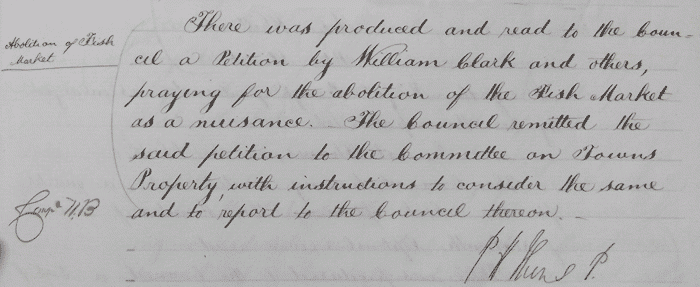 Abolition of Fish
Market
There was produced and read to the Coun-
cil a Petition by William Clark and others,
praying for the abolition of the Fish Market
as a nuisance. The Council remitted the
said petition to the Committee on Towns
Property, with instructions to consider the same
and to report to the Council thereon.